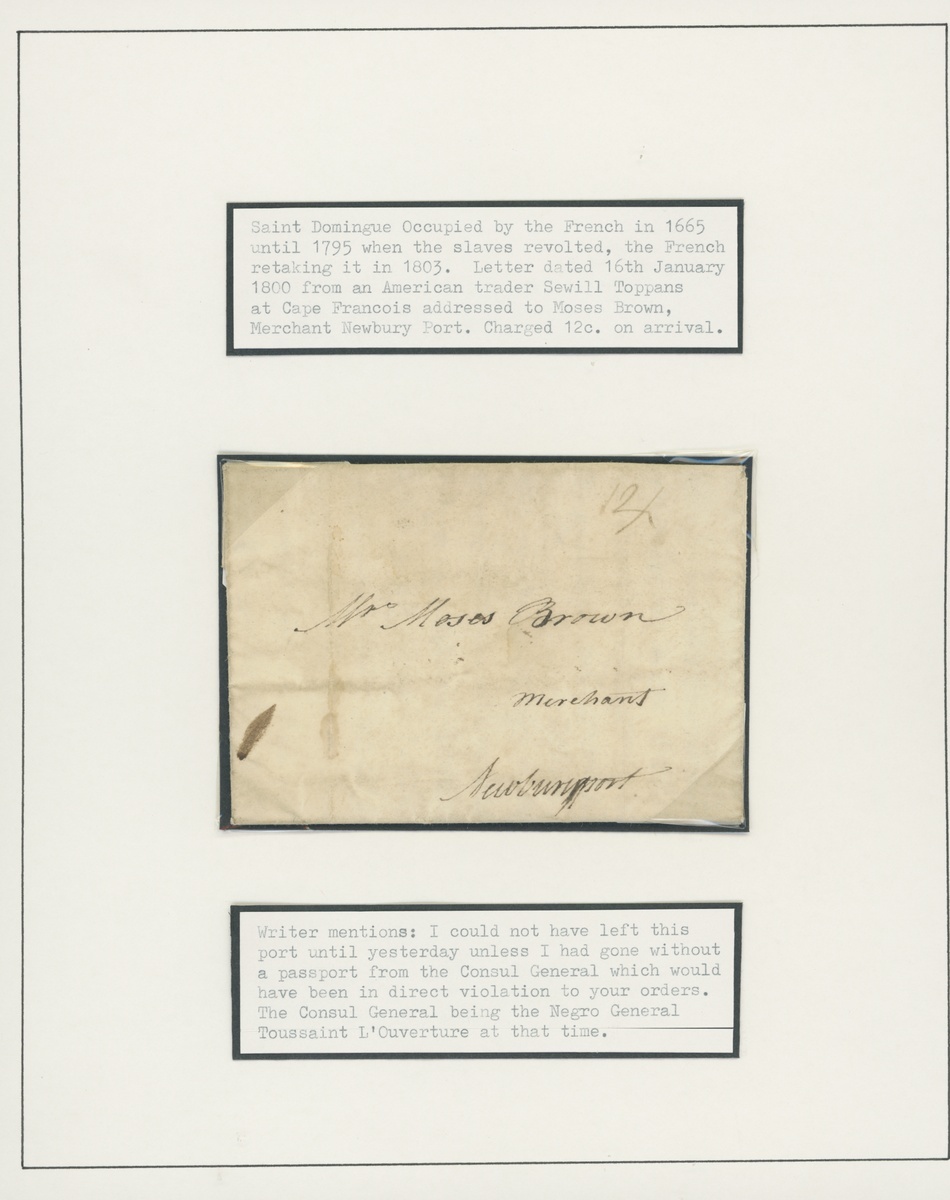 Saint Domingue Occupied by the French in 1665
until 1795 when the slaves revolted, the French
retaking it in 1803.  Letter dated 16th January
1800 from an American trader Sewill Toppans
at Cape Francois addressed to Moses Brown,
Merchant Newbury Port. Charged 12c. on arrival.
12
Mr. Moses Brown
Merchant
Newburyport
Writer mentions: I could not have left this
port until yesterday unless I had gone without
a passport from the Consul General which would
have been in direct violation to your orders.
The Consul General being the Negro General
Toussaint L'Ouverture at that time.